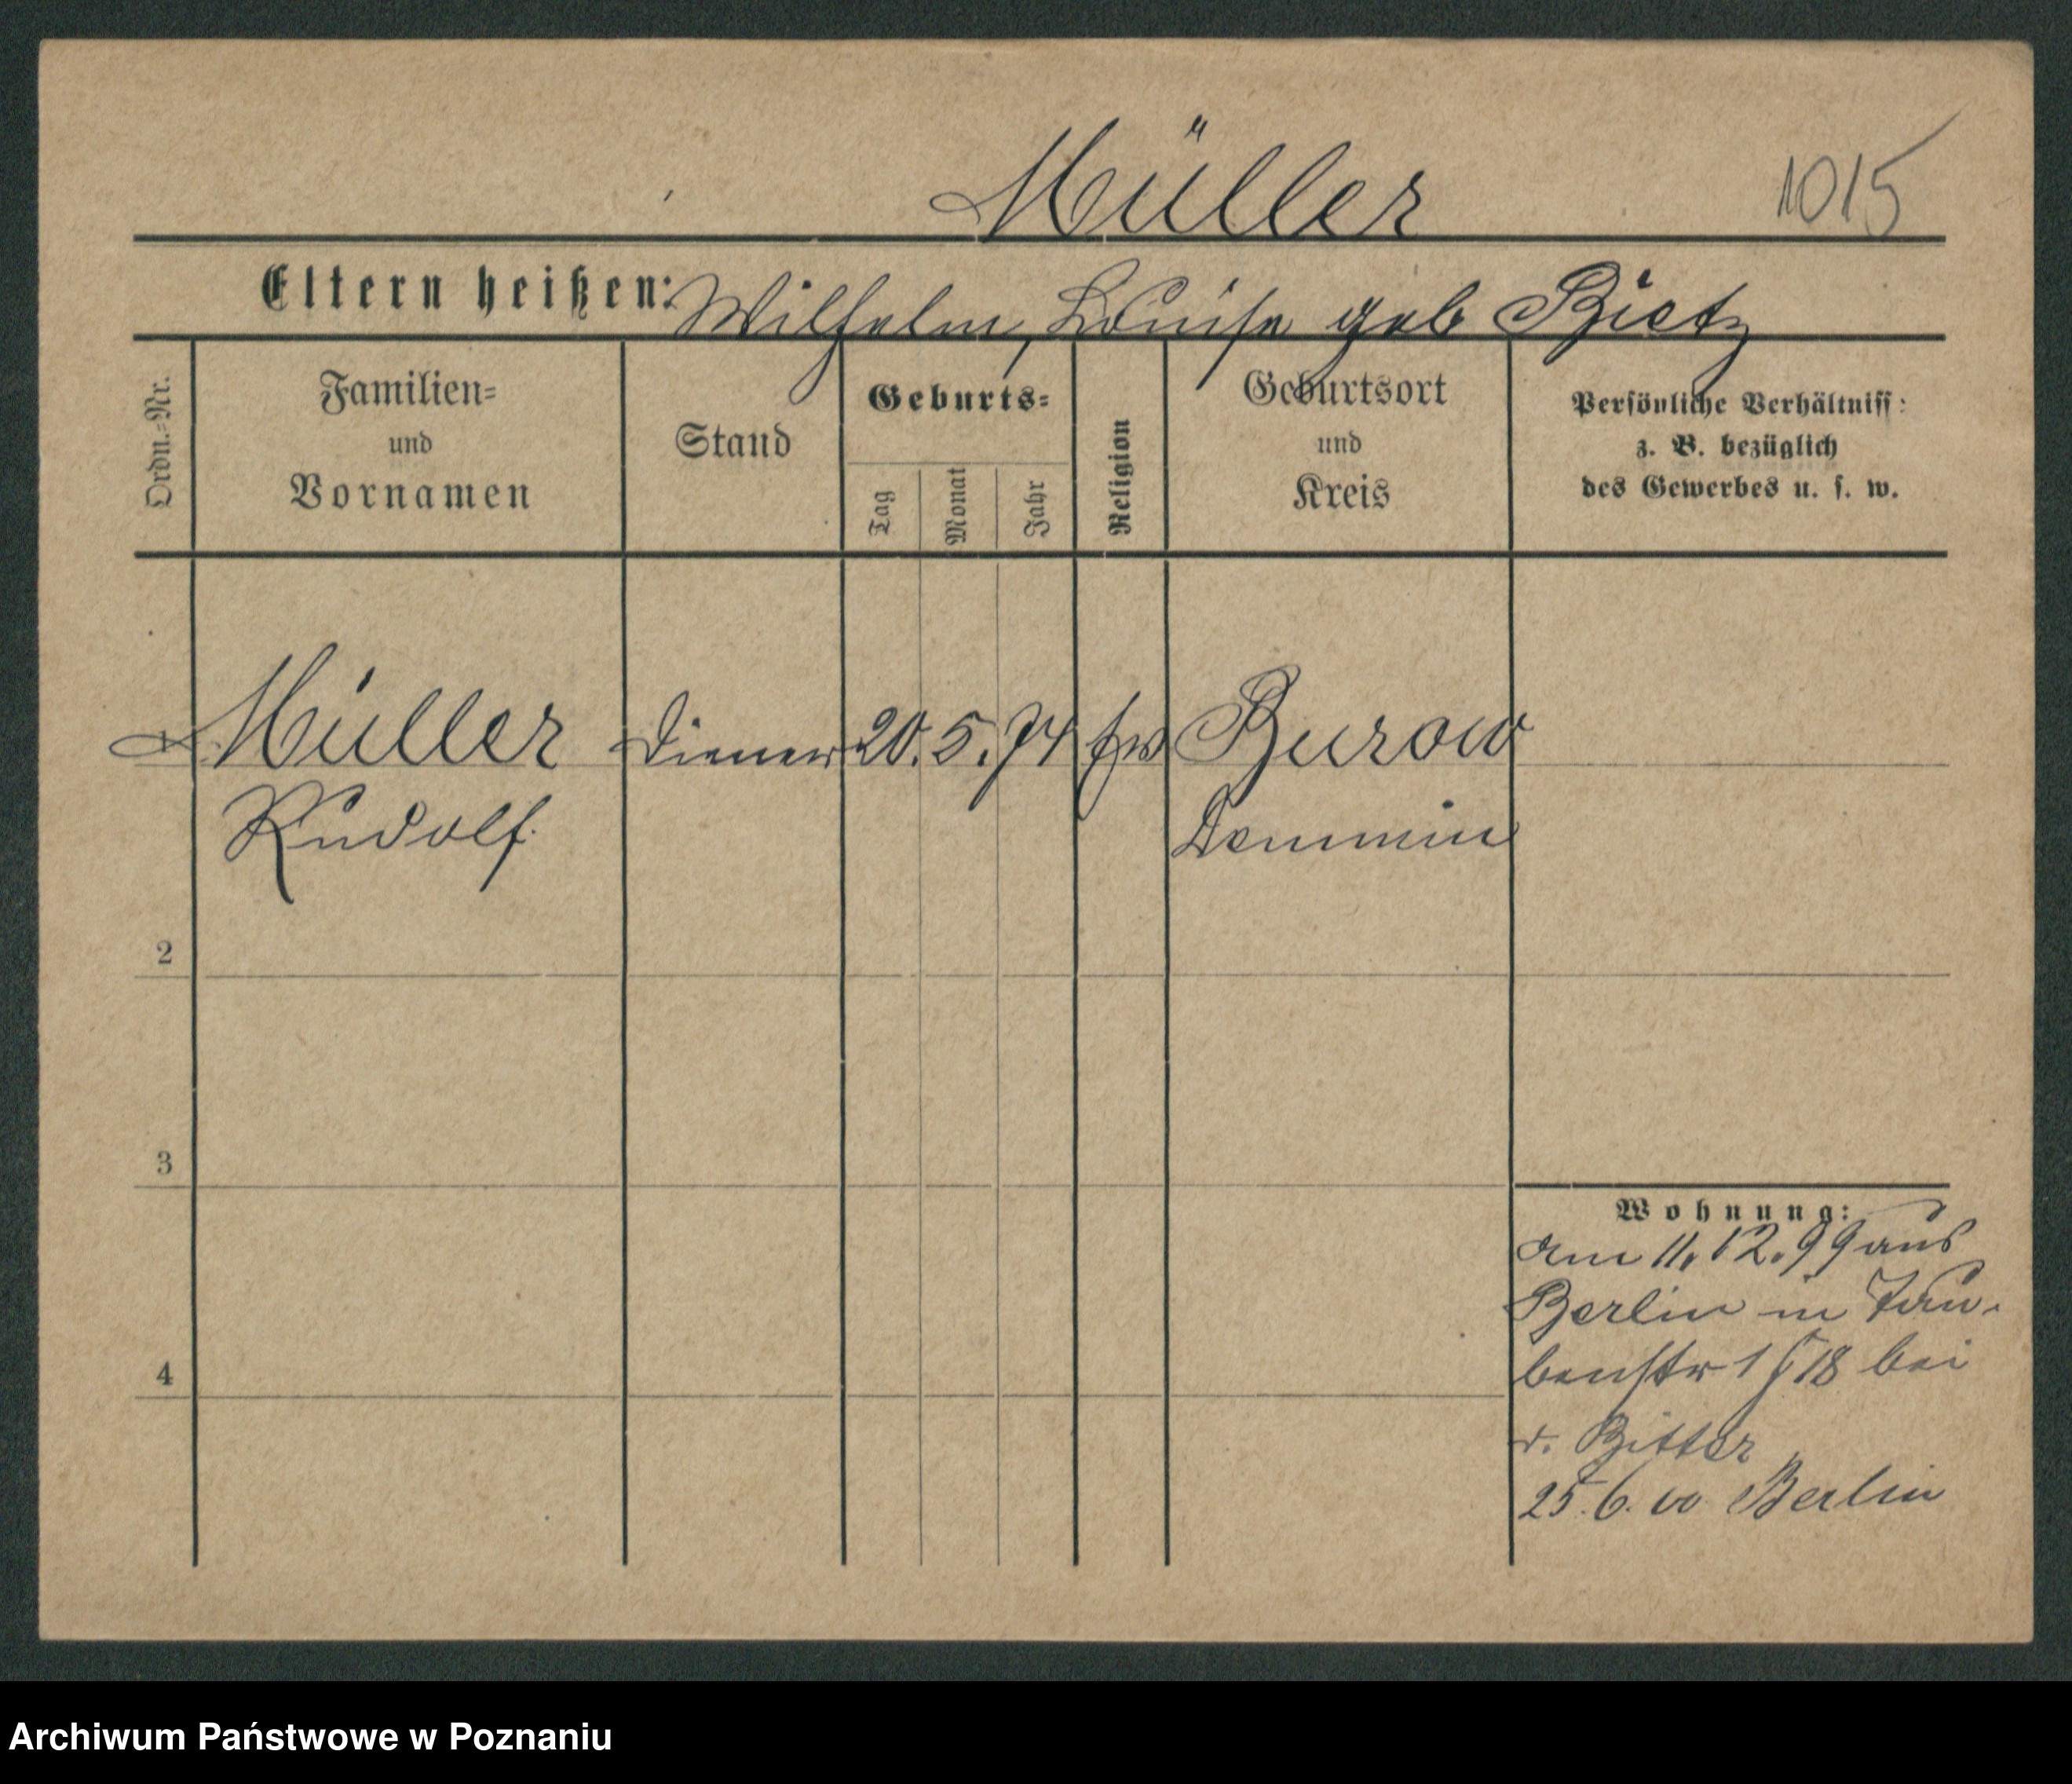 Müller 1015
Eltern heißen: Wilhelm, Louise geb Bietz
Ordn.-Nr.
Familien-
und
Vornamen
Stand
Geburts-
Tag
Monat
Jahr
Religion
Geburtsort
und
Kreis
Persönliche Verhältniss:
z. B. bezüglich
des Gewerbes u. s. w.
1 Müller Diener 20. 5. 74 ew Burow
Rudolf. Demmin
2
3
4
Wohnung:
Am 11. 12. 99 aus
Berlin in Tau-
benstr 18 bei
v. Bitter
25. 6. 00 Berlin
Archiwum Państwowe w Poznaniu